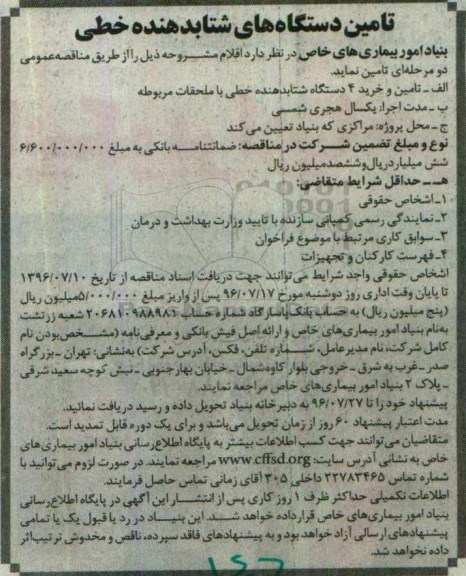 تامین دستگاه‌های شتابدهنده خطی
بنیاد امور بیماری‌های خاص در نظر دارد اقلام مشروحه ذیل را از طریق مناقصه عمومی
دو مرحله‌ای تامین نماید.
الف ـ تامین و خرید ۴ دستگاه شتابدهنده خطی با ملحقات مربوطه
ب ـ مدت اجرا: یکسال هجری شمسی
ج ـ محل پروژه: مراکزی که بنیاد تعیین می‌کند
نوع و مبلغ تضمین شرکت در مناقصه: ضمانتنامه بانکی به مبلغ ۶/۶۰۰/۰۰۰/۰۰۰
شش میلیارد ریال و ششصد میلیون ریال
هـ ـ حداقل شرایط متقاضی:
۱ـ اشخاص حقوقی
۲ـ نمایندگی رسمی کمپانی سازنده با تایید وزارت بهداشت و درمان
۳ـ سوابق کاری مرتبط با موضوع فراخوان
۴ـ فهرست کارکنان و تجهیزات
اشخاص حقوقی واجد شرایط می‌توانند جهت دریافت اسناد مناقصه از تاریخ ۱۳۹۶/۰۷/۱۰
تا پایان وقت اداری روز دوشنبه مورخ ۹۶/۰۷/۱۷ پس از واریز مبلغ ۵/۰۰۰/۰۰۰میلیون ریال
(پنج میلیون ریال) به حساب بانک پاسارگاد شماره حساب ۲۰۶۸۱۰۹۸۸۹۸۱ شعبه زرتشت
به‌نام بنیاد امور بیماری‌های خاص و ارائه اصل فیش بانکی و معرفی‌نامه (مشخص بودن نام
کامل شرکت، نام مدیرعامل، شماره تلفن، فکس، آدرس شرکت) به‌نشانی: تهران ـ بزرگراه
صدر ـ غرب به شرق ـ خروجی بلوار کاوه شمال ـ خیابان بهار جنوبی ـ نبش کوچه سعید شرقی
ـ پلاک ۲ بنیاد امور بیماری‌های خاص مراجعه نمایند.
پیشنهاد خود را تا ۹۶/۰۷/۲۷ به دبیرخانه بنیاد تحویل داده و رسید دریافت نمائید.
مدت اعتبار پیشنهاد ۶۰ روز از زمان تحویل می‌باشد و برای یک دوره قابل تمدید است.
متقاضیان می‌توانند جهت کسب اطلاعات بیشتر به پایگاه اطلاع رسانی بنیاد امور بیماری‌های
خاص به نشانی آدرس سایت: www.cffsd.org مراجعه نمایند. در صورت لزوم می‌توانید با
شماره تماس ۲۲۷۸۳۴۶۵ داخلی ۳۰۵ آقای زمانی تماس حاصل فرمایند.
اطلاعات تکمیلی حداکثر ظرف ۱ روز کاری پس از انتشار این آگهی در پایگاه اطلاع‌رسانی
بنیاد امور بیماری‌های خاص قرار داده خواهد شد. این بنیاد در رد یا قبول یک یا تمامی
پیشنهادهای ارسالی آزاد خواهد بود و به پیشنهادهای فاقد سپرده، ناقص و مخدوش ترتیب اثر
داده نخواهد شد.